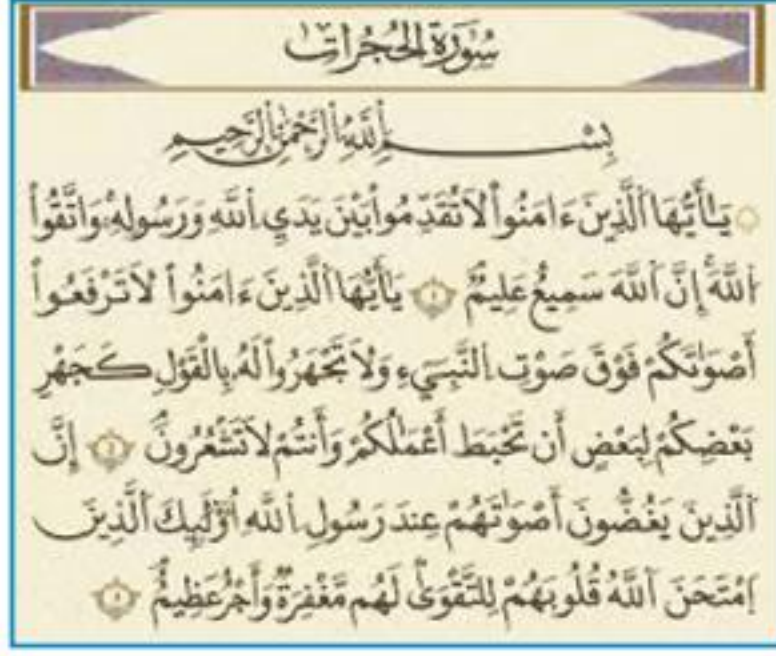 سُورَةُ الْحُجُرَاتِ
بِسْمِ اللَّهِ الرَّحْمَٰنِ الرَّحِيمِ
يَٰأَيُّهَا اَلَّذِينَ ءَامَنُواْ لَا تُقَدِّمُواْ بَيْنَ يَدَيِ اِللَّهِ وَرَسُولِهِۦ وَاتَّقُواْ
اُللَّهَ إِنَّ اَللَّهَ سَمِيعٌ عَلِيمٌ يَٰأَيُّهَا اَلَّذِينَ ءَامَنُواْ لَا تَرْفَعُواْ
أَصْوَٰتَكُمْ فَوْقَ صَوْتِ اِلنَّبِيٓءِ وَلَا تَجْهَرُواْ لَهُۥ بِالْقَوْلِ كَجَهْرِ
بَعْضِكُمْ لِبَعْضٍ أَن تَحْبَطَ أَعْمَٰلُكُمْ وَأَنتُمْ لَا تَشْعُرُونَ إِنَّ
اَلَّذِينَ يَغُضُّونَ أَصْوَٰتَهُمْ عِندَ رَسُولِ اِللَّهِ أُوْلَٰٓئِكَ اَلَّذِينَ
اَمْتَحَنَ اَللَّهُ قُلُوبَهُمْ لِلتَّقْوَىٰ لَهُم مَّغْفِرَةٌ وَأَجْرٌ عَظِيمٌ